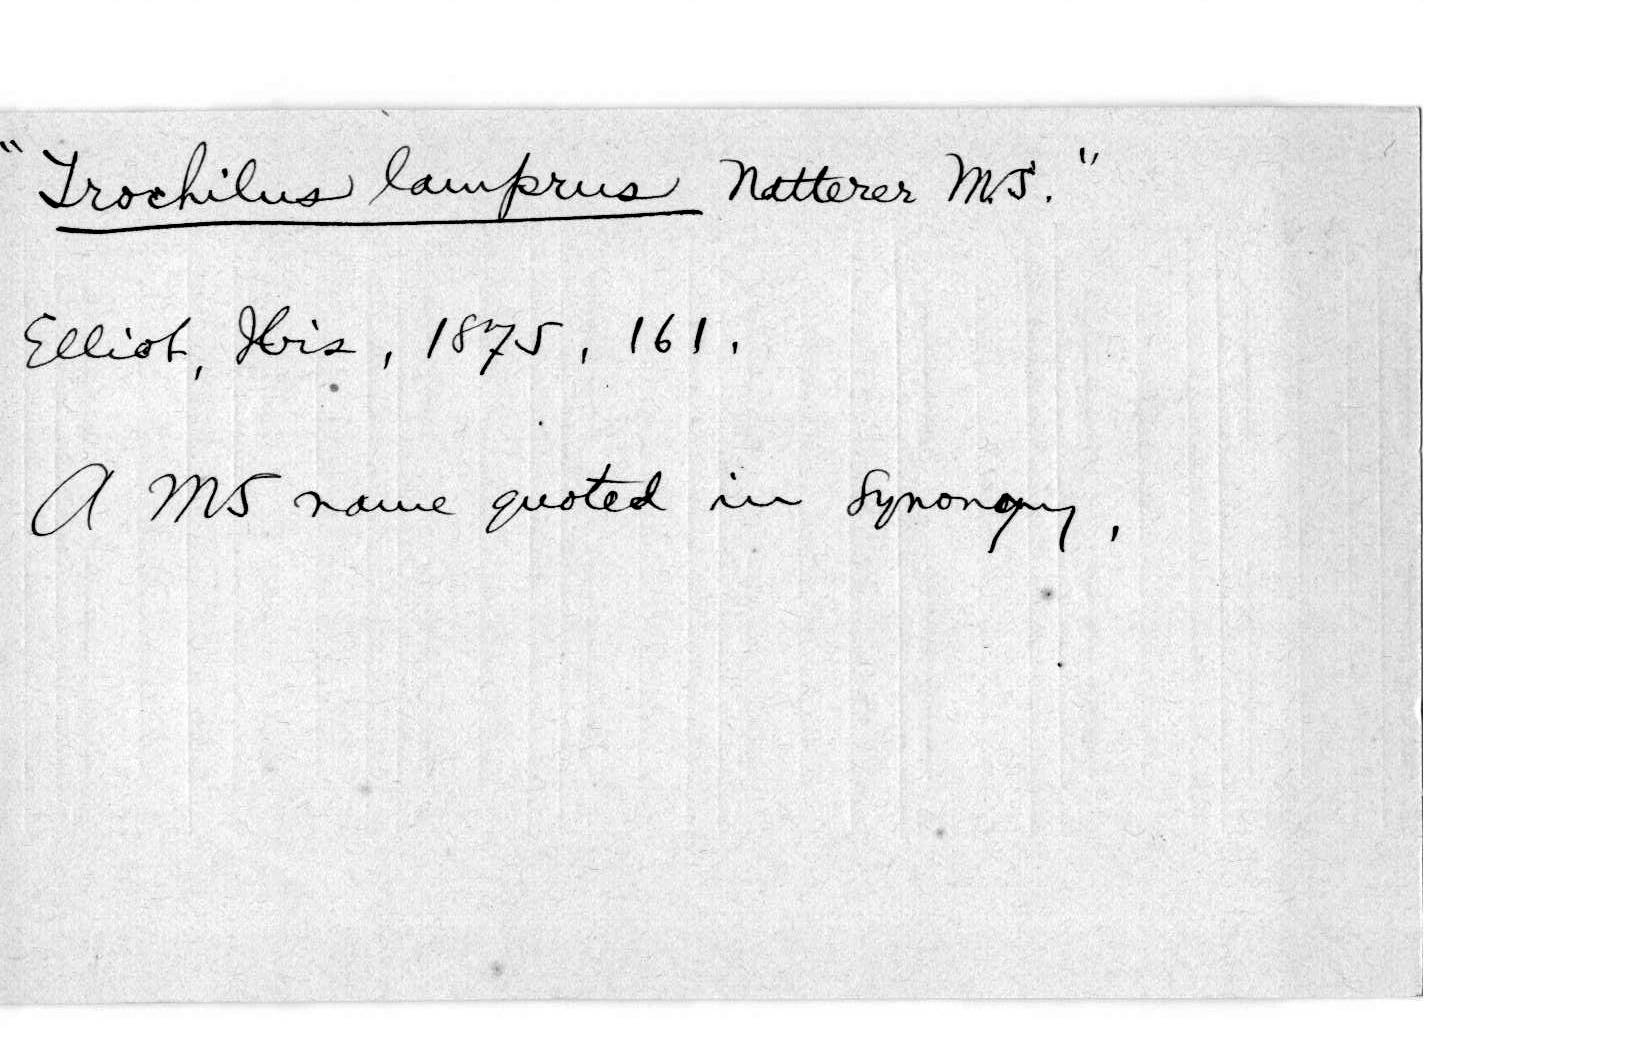 "Trochilus lamprus Natterer MS."
Elliot, Ibis, 1875, 161.
A MS name quoted in synonymy.